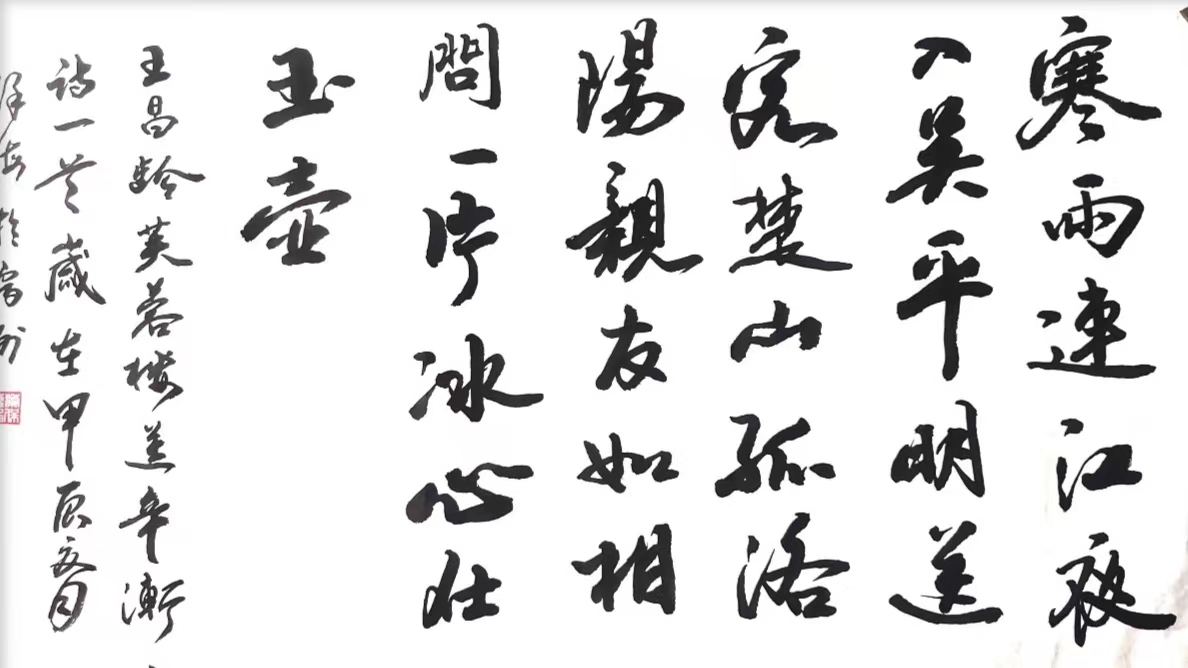 寒雨連江夜
入吴平明送
客楚山孤洛
陽親友如相
問一片冰心在
玉壺
王昌齡芙蓉楼送辛漸
詩一首歲在甲辰夏月
於